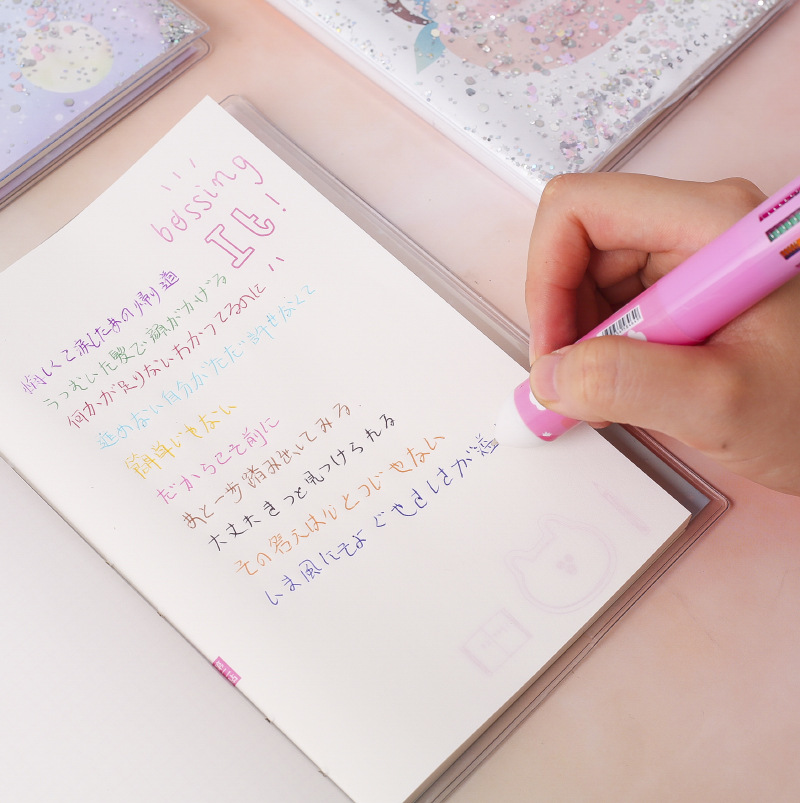 bossing
It!
悔しくて涙したあの帰り道
うつむいた髪で顔がかげる
何かが足りないわかってるのに
進めない自分がただ許せなくて
簡単じゃない
だからこそ前に
あと一歩踏み出してみる.
大丈夫きっと見つけられる
その答えはひとつじゃない
いま風にそよぐやさしさが